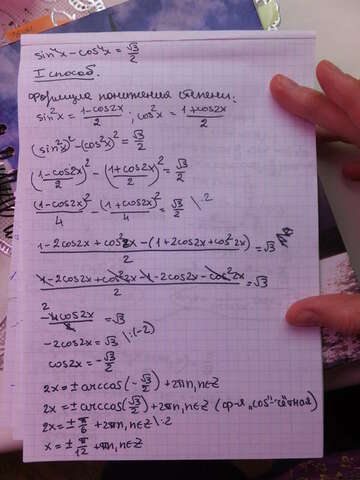 sin⁴x - cos⁴x = √3/2
I способ.
Формула понижения степени:
sin²x = (1-cos2x)/2 ; cos²x = (1+cos2x)/2
(sin²x)² - (cos²x)² = √3/2
((1-cos2x)/2)² - ((1+cos2x)/2)² = √3/2
(1-cos2x)²/4 - (1+cos2x)²/4 = √3/2 \·2
(1-2cos2x+cos²2x-(1+2cos2x+cos²2x))/2 = √3
(1-2cos2x+cos²2x-1-2cos2x-cos²2x)/2 = √3
2
-4cos2x/2 = √3
-2cos2x = √3 \:(-2)
cos2x = -√3/2
2x = ± arccos(-√3/2) + 2πn, n∈Z
2x = ± arccos(√3/2) + 2πn, n∈Z (ф-я "cos"-чётная)
2x = ± π/6 + 2πn, n∈Z \:2
x = ± π/12 + πn, n∈Z